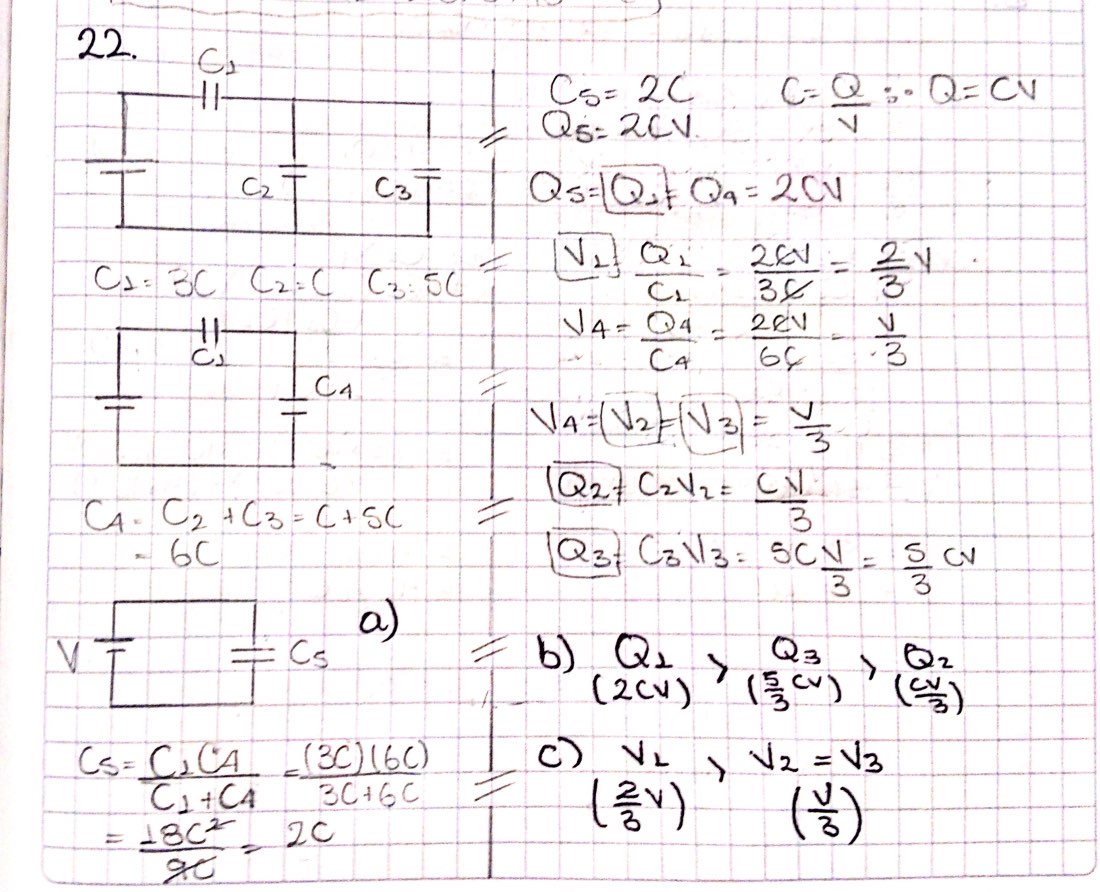 22.
C1
C2 C3
C1= 3C C2=C C3=5C
C1
C4
C4= C2 + C3 = C+5C
= 6C
a)
V C5
C5= C1C4/C1+C4 = (3C)(6C)/3C+6C
= 18C²/9C = 2C
C5= 2C C= Q/V ∴ Q= CV
Q5= 2CV
Q5= Q1= Q4= 2CV
V1= Q1/C1 = 2CV/3C = 2/3 V
V4= Q4/C4 = 2CV/6C = V/3
V4= V2= V3= V/3
Q2= C2V2= CV/3
Q3= C3V3= 5C V/3 = 5/3 CV
b) Q1 > Q3 > Q2
(2CV) (5/3 CV) (CV/3)
c) V1 > V2 = V3
(2/3 V) (V/3)